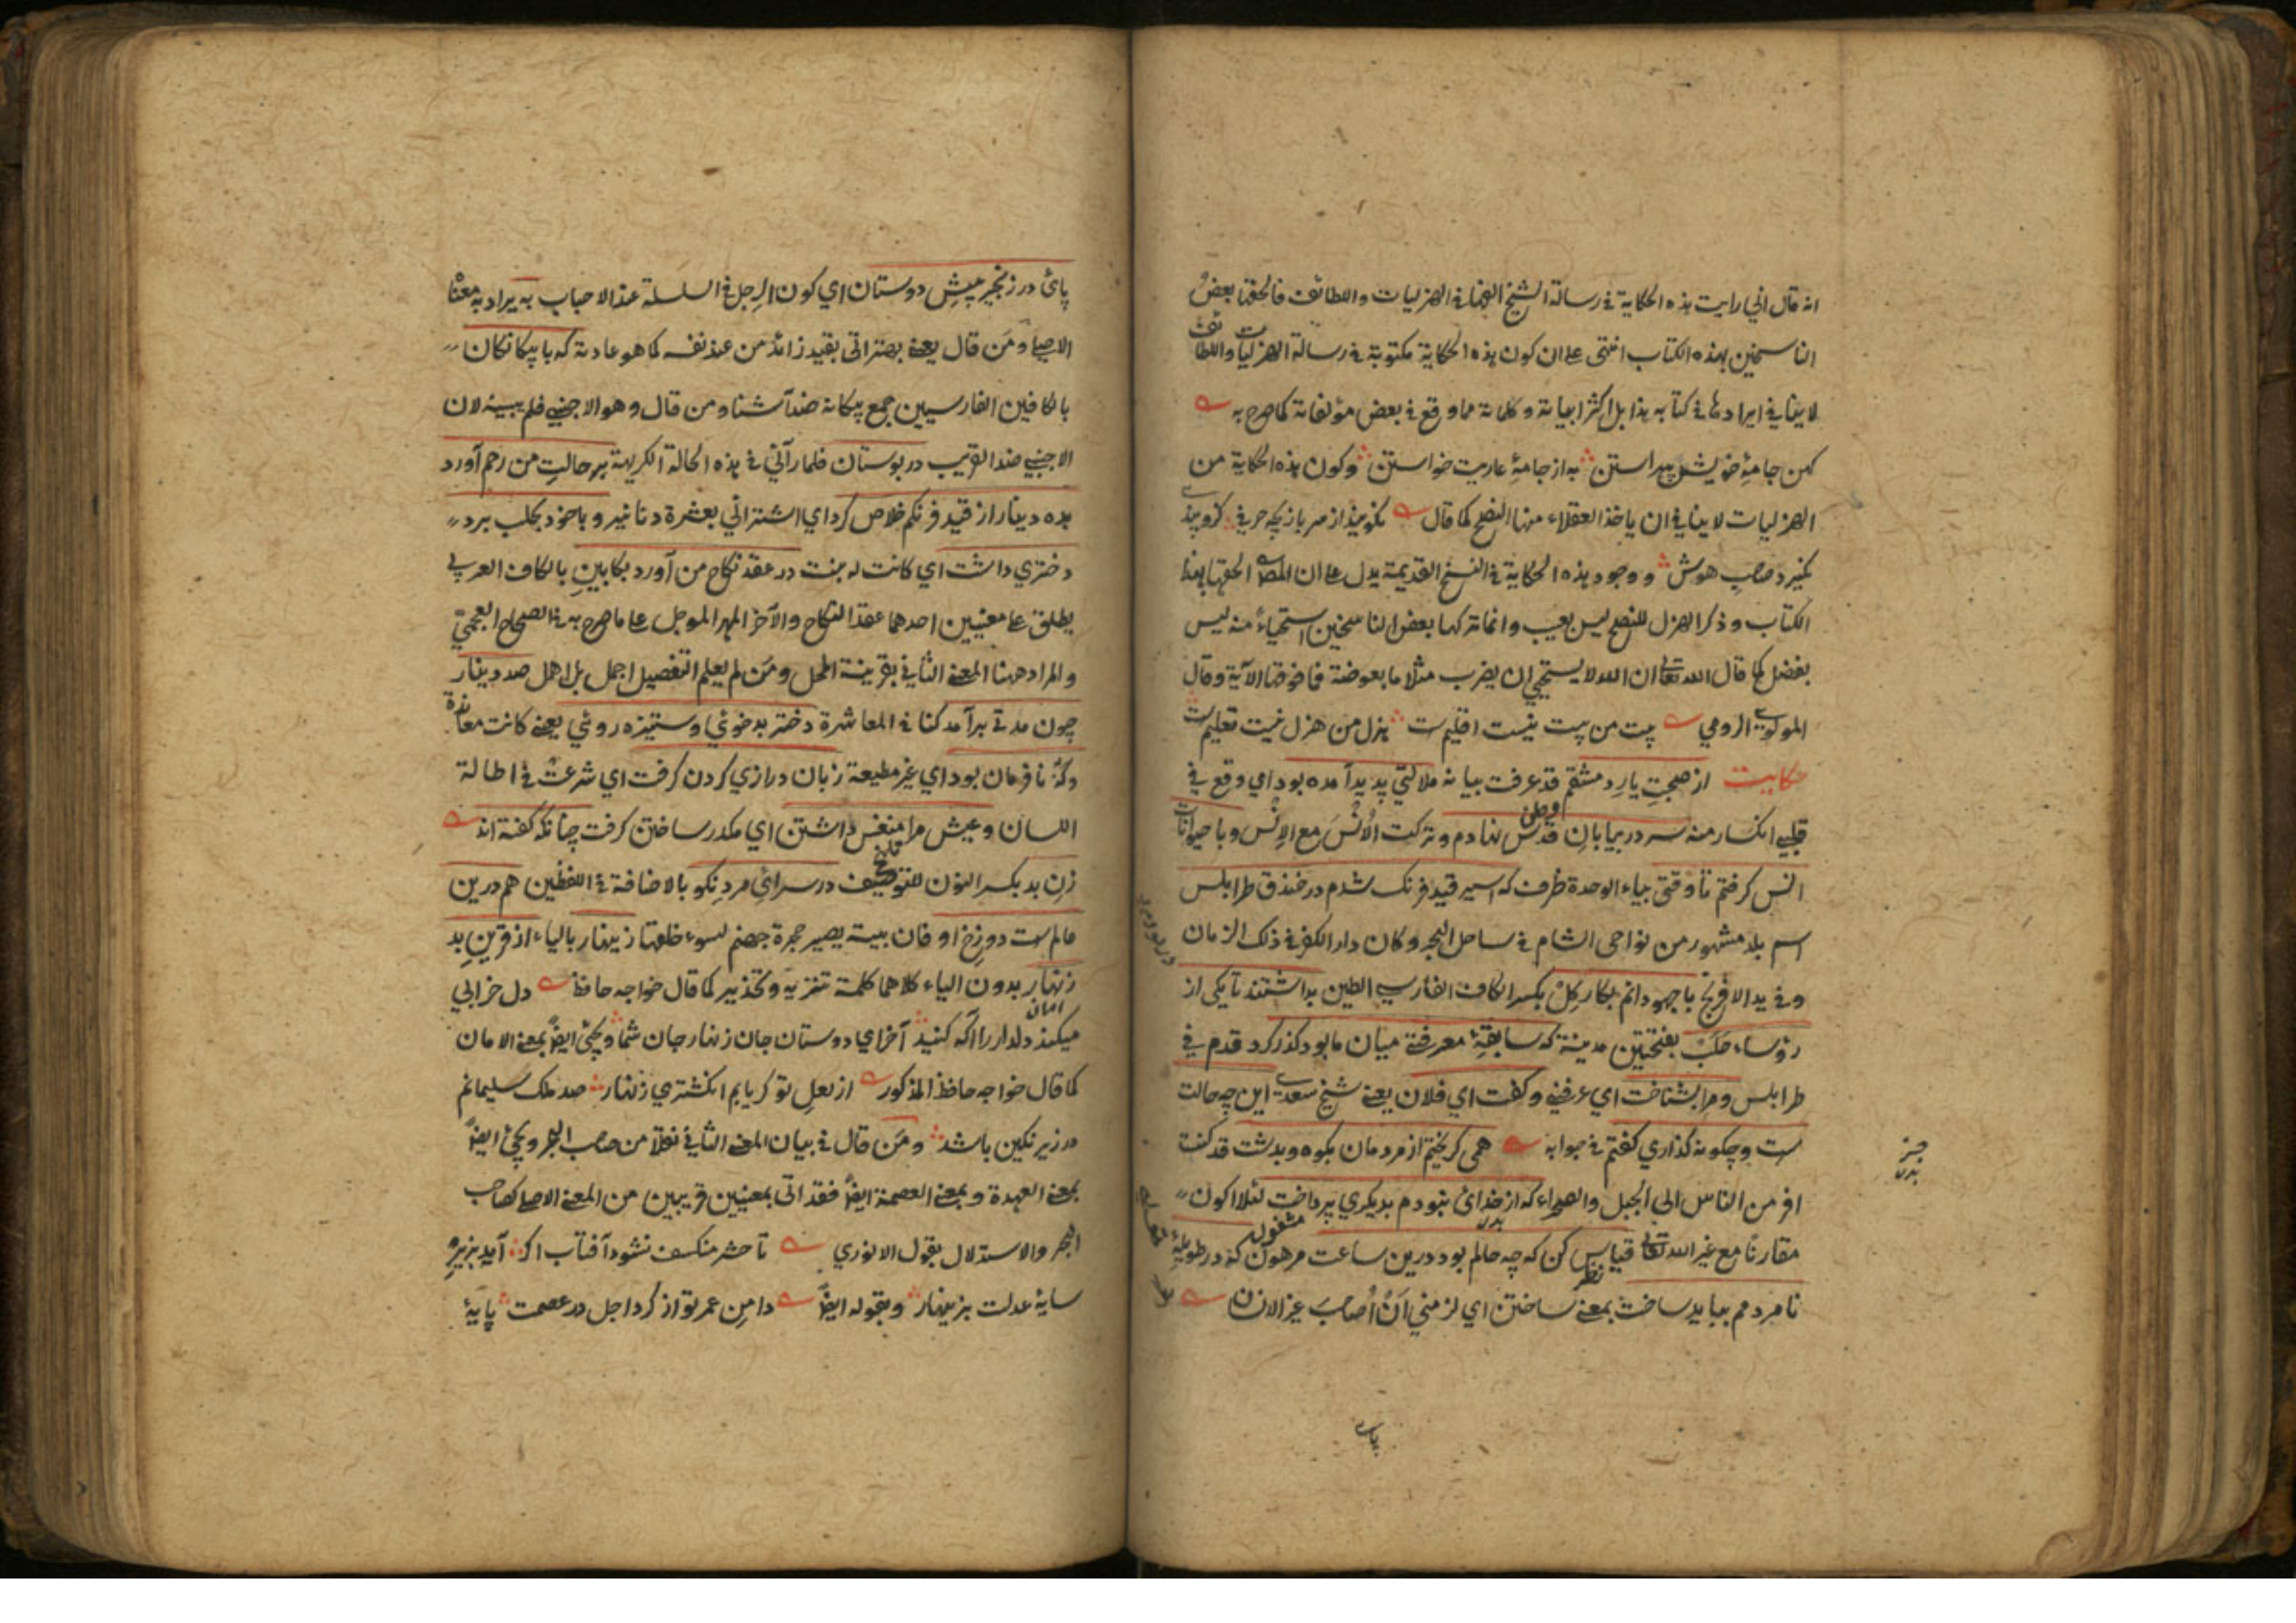 انه قال اني رايت هذه الحكاية في رسالة الشيخ ايضا في الهزليات واللطائف فالحقها بعض
الناسخين بهذه الكتاب انتهى على ان كون هذه الحكاية مكتوبة في رسالة الهزليات واللطائف
لا ينافي ايرادها في كتابه هذا بل اكثر ابياته وكلماته مما وقع في بعض مؤلفاته كما صرح به
كهن جامهٔ خويش پيراستن به از جامهٔ عاريت خواستن وكون هذه الحكاية من
الهزليات لا ينافي ان ياخذ العقلاء منها النصح كما قال نكويند از سر بازيچه حرفي كزو پندي
نكيرد صاحب هوش ووجود هذه الحكاية في النسخ القديمة يدل على ان المص الحقها بهذا
الكتاب وذكر الهزل للنصح ليس بعيب وانما تركها بعض الناسخين استحياءً منه ليس
بفضل كما قال الله تعالى ان الله لا يستحيي ان يضرب مثلا ما بعوضة فما فوقها الآية وقال
المولوي الرومي بيت من بيت نيست اقليمست هزل من هزل نيست تعليمست
حكايت از صحبت يار دمشقم قد عرفت بيانه ملالتي پديد آمده بود اي وقع في
قلبي انكسار منه سر در بيابان قدس نهادم وتركت الاُنْسَ مع الاِنْس وبا حيوانات
انس كرفتم تا وقتى بياء الوحدة ظرف كه اسير قيد فرنك شدم در خندق طرابلس
اسم بلد مشهور من نواحى الشام في ساحل البحر وكان دار الكفر في ذلك الزمان
وفي يد الافرنج با جهودانم بكار كِلْ بكسر الكاف الفارسي الطين بداشتند تا يكى از
رؤساء حَلَبْ بفتحتين مدينة كه سابقهٔ معرفتى ميان ما بود كذر كرد قدم في
طرابلس ومرا بشناخت اي عرفني وكفت اي فلان يعني شيخ سعدي اين چه حالت
است وچكونه كذاري كفتم في جوابه همى كريختم از مردمان بكوه وبدشت قد كنت
افر من الناس الى الجبل والصحراء كه از خداى نبودم بديكري پرداخت لئلا اكون
مقارنًا مع غير الله تعالى قياس كن كه چه حالم بود درين ساعت مرهون كه در طويلهٔ
نا مردمم ببايد ساخت بمعنى ساختن اي لزمني اَنْ اُصاحبَ غير الانسان
پاى در زنجير پيش دوستان اي كون الرجل في السلسلة عند الاحباب به يراد به معناه
الاصلي ومَن قال يعني بهتر اتى بقيد زائد من عند نفسه كما هو عادته كه با بيكانكان
بالكافين الفارسيين جمع بيكانه ضد آشنا ومن قال وهو الاجنبي فلم يبينه لان
الاجنبي ضد القريب در بوستان فلما رآني في هذه الحالة الكريهة بر حالت من رحم آورد
بده دينار از قيد فرنكم خلاص كرد اي اشتراني بعشرة دنانير وبا خود بحلب برد
دختري داشت اي كانت له بنت در عقد نكاح من آورد بكابينِ بالكاف العربي
يطلق على معنيين احدهما عقد النكاح والآخر المهر الموجل على ما صرح به في الصحاح العجمي
والمراد ههنا المعنى الثاني بقرينة المحل ومَن لم يعلم التفصيل اجمل بل اهمل صد دينار
چون مدتى برآمد كنا في المعاشرة دختر بدخوئي وستيزه روئي يعني كانت معاندة
وكهٔ نافرمان بود اي غير مطيعة زبان درازي كردن كرفت اي شرعتْ في اطالة
اللسان وعيش مرا منغص داشتن اي مكدر ساختن كرفت چنانكه كفته اند
زنِ بد بكسر النون للتوصيف در سرائي مردِ نكو بالاضافة في اللفظين هم درين
عالمست دوزخ او فان بيته يصير حجرة جهنم لسوء خلقها زينهار بالياء از قرين بد
زنهار بدون الياء كلاهما كلمة تنزيه وتحذير كما قال خواجه حافظ دل خرابي
ميكند دلدار را اكه كنيد آخر اي دوستان جان زنهار جان شما ويجئ ايضًا بمعنى الامان
كما قال خواجه حافظ المذكور از لعل تو كر يابم انكشتري زنهار صد ملك سليمانم
در زير نكين باشد ومَن قال في بيان المعنى الثاني نقلًا من صاحب البحر ويجئ ايضًا
بمعنى العهدة وبمعنى العصمة ايضًا فقد اتى بمعنيين قريبين من المعنى الاصلي كصاحب
البحر والاستدلال بقول الانوري تا حشر منكسف نشود آفتاب اكر آيد بزير
سايهٔ عدلت بزينهار وبقوله ايضًا دامنِ عمر تو از كرد اجل در عصمت پايهٔ